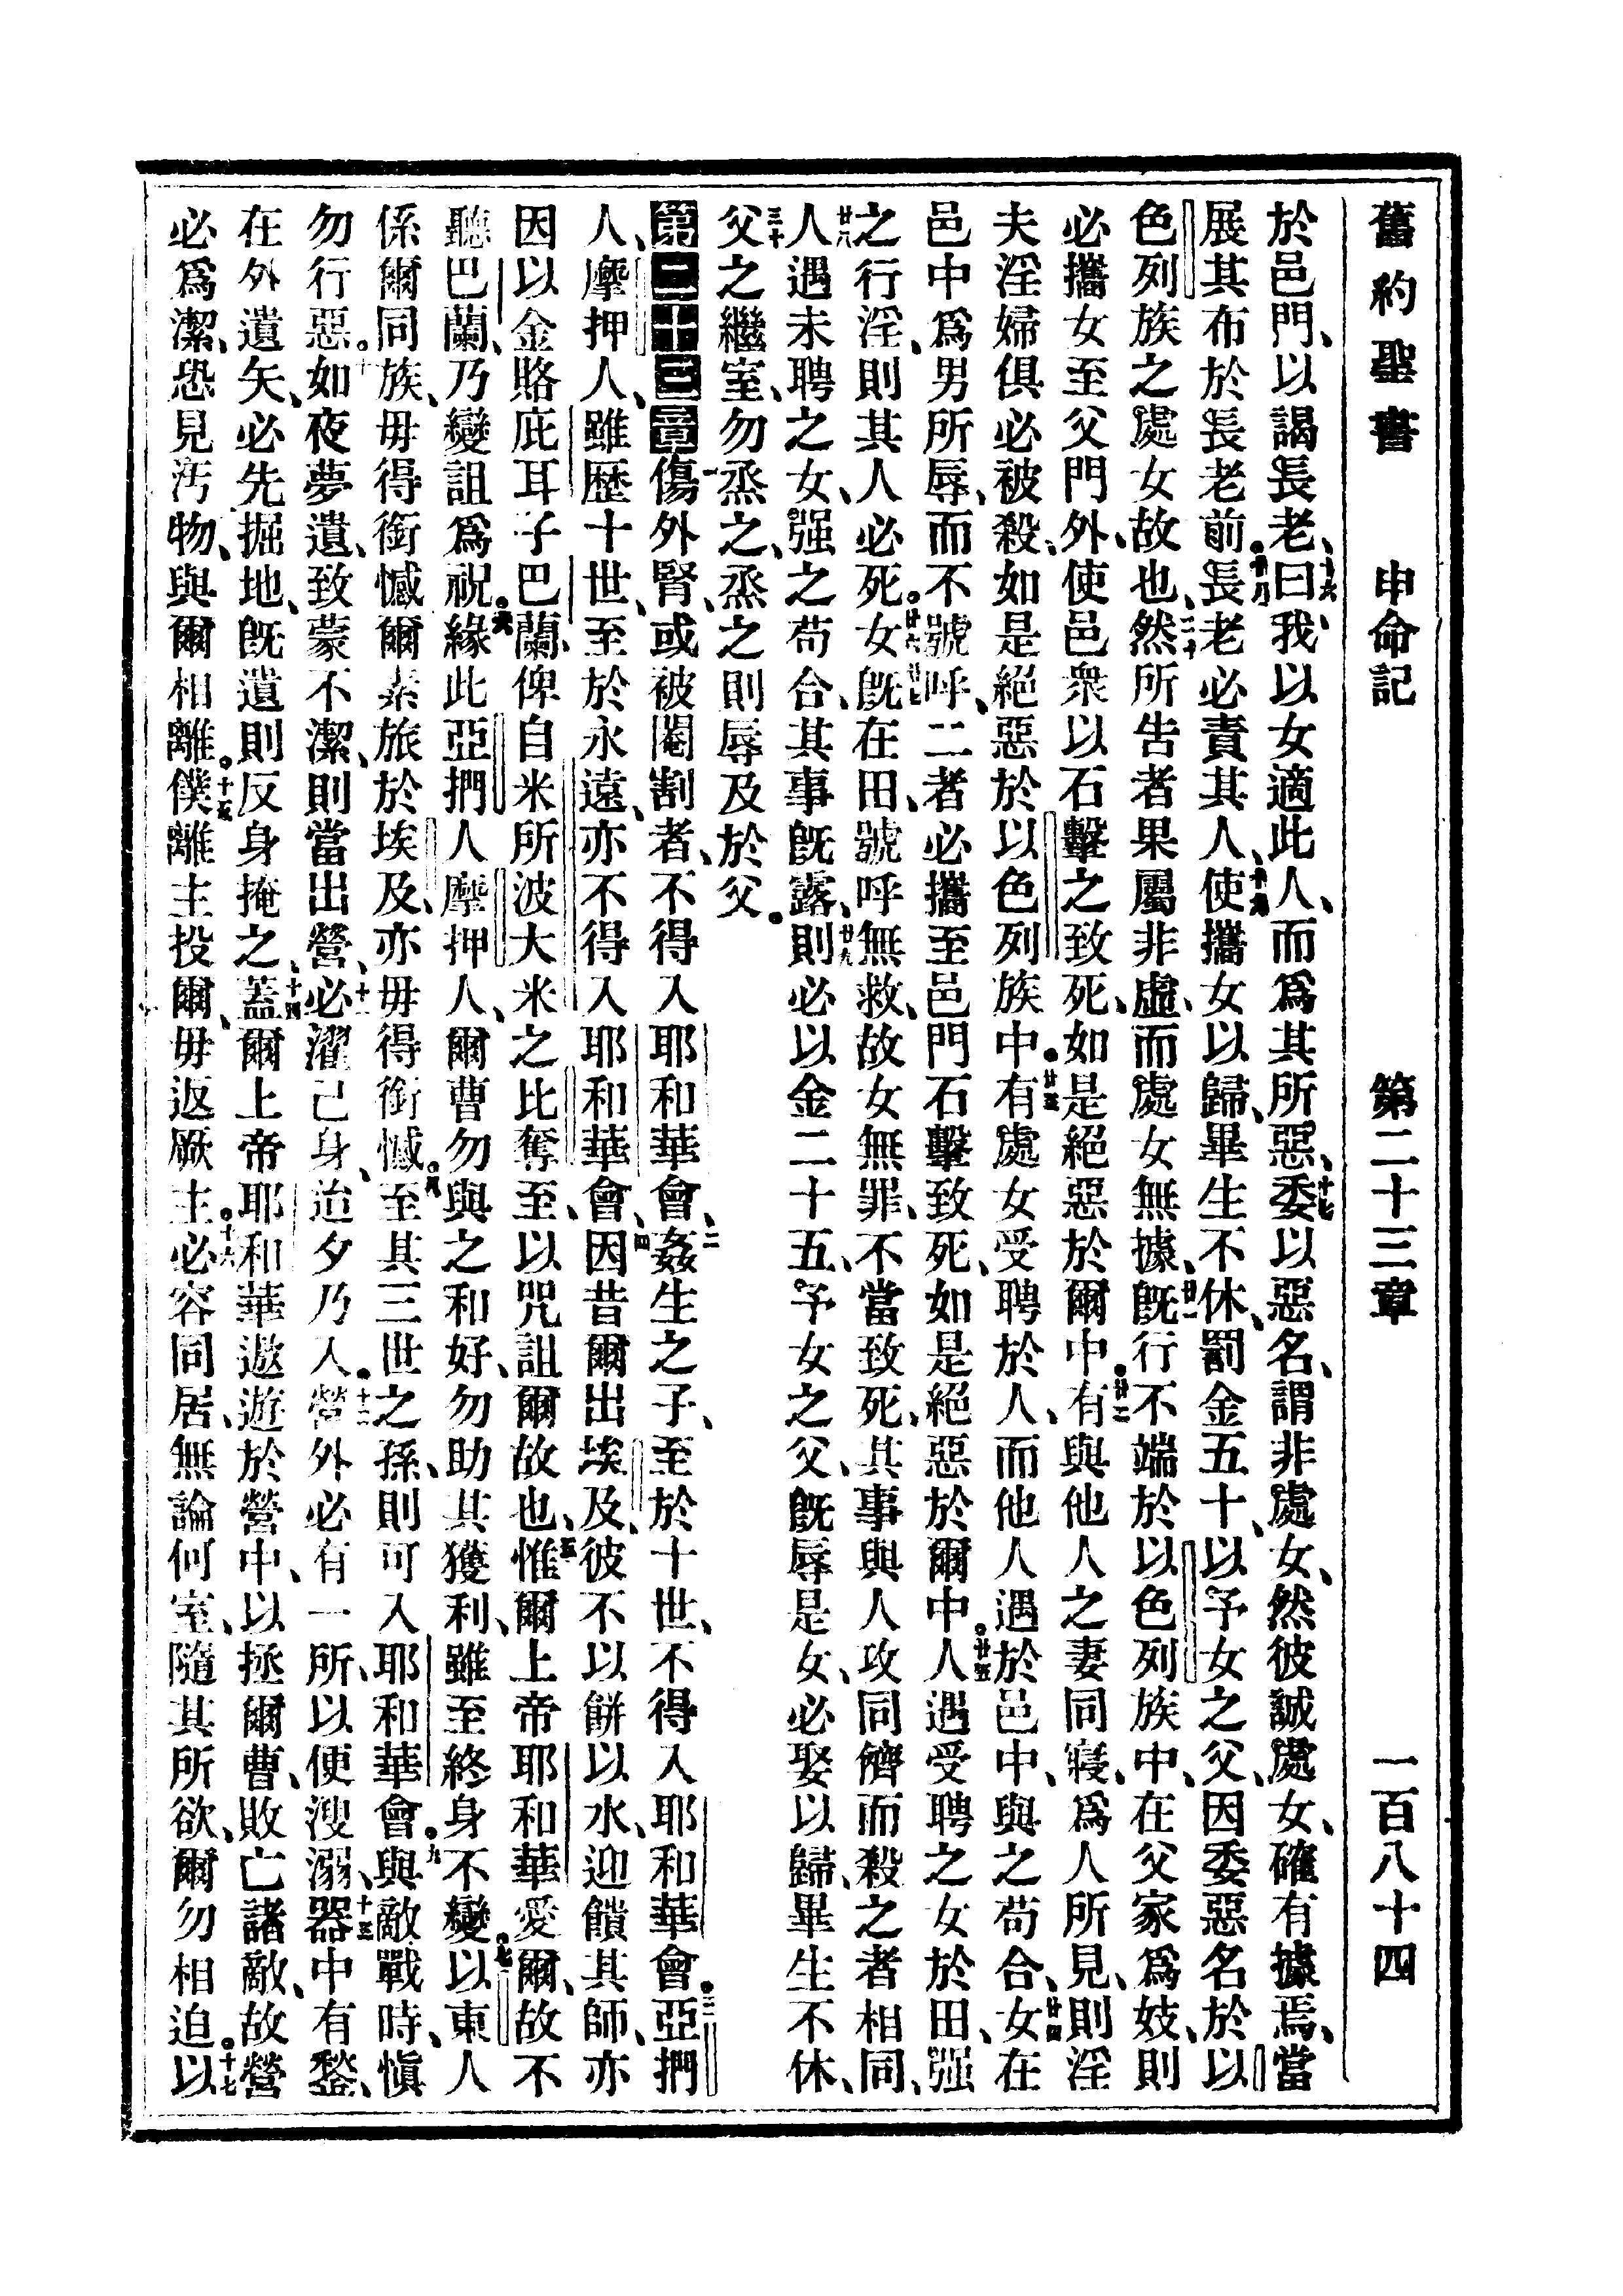 舊約聖書 申命記 第二十三章 一百八十四
於邑門、以謁長老、十六曰、我以女適此人、而爲其所惡、十七委以惡名、謂非處女、然彼誠處女、確有據焉、當
展其布於長老前。十八長老必責其人、十九使攜女以歸、畢生不休、罰金五十、以予女之父、因委惡名於以
色列族之處女故也、二十然所告者果屬非虛、而處女無據、廿一旣行不端於以色列族中、在父家爲妓、則
必攜女至父門外、使邑衆以石擊之致死、如是絕惡於爾中。廿二有與他人之妻同寢、爲人所見、則淫
夫淫婦俱必被殺、如是絕惡於以色列族中。廿三有處女受聘於人、而他人遇於邑中、與之苟合、廿四女在
邑中爲男所辱、而不號呼、二者必攜至邑門石擊致死、如是絕惡於爾中。廿五人遇受聘之女於田、强
之行淫、則其人必死。廿六廿七女旣在田、號呼無救、故女無罪、不當致死、其事與人攻同儕而殺之者相同、
廿八人遇未聘之女、强之苟合、其事旣露、廿九則必以金二十五、予女之父、旣辱是女、必娶以歸、畢生不休、
三十父之繼室、勿烝之、烝之則辱及於父。
第二十三章一傷外腎、或被閹割者、不得入耶和華會、二姦生之子、至於十世、不得入耶和華會。三亞捫
人、摩押人、雖歷十世、至於永遠、亦不得入耶和華會、四因昔爾出埃及、彼不以餅以水、迎饋其師、亦
因以金賂庇耳子巴蘭、俾自米所波大米之比奪至、以咒詛爾故也、五惟爾上帝耶和華愛爾、故不
聽巴蘭、乃變詛爲祝。六緣此亞捫人摩押人、爾曹勿與之和好、勿助其獲利、雖至終身不變。七以東人
係爾同族、毋得銜憾爾素旅於埃及、亦毋得銜憾。八至其三世之孫、則可入耶和華會。九與敵戰時、愼
勿行惡。十如夜夢遺、致蒙不潔、則當出營、十一必濯己身、迨夕乃入。十二營外必有一所、以便溲溺、十三器中有鍫、
在外遺矢、必先掘地、旣遺則反身掩之、十四蓋爾上帝耶和華遨遊於營中、以拯爾曹、敗亡諸敵、故營
必爲潔、恐見汚物、與爾相離。十五僕離主投爾、毋返厥主。十六必容同居、無論何室、隨其所欲、爾勿相迫。十七以